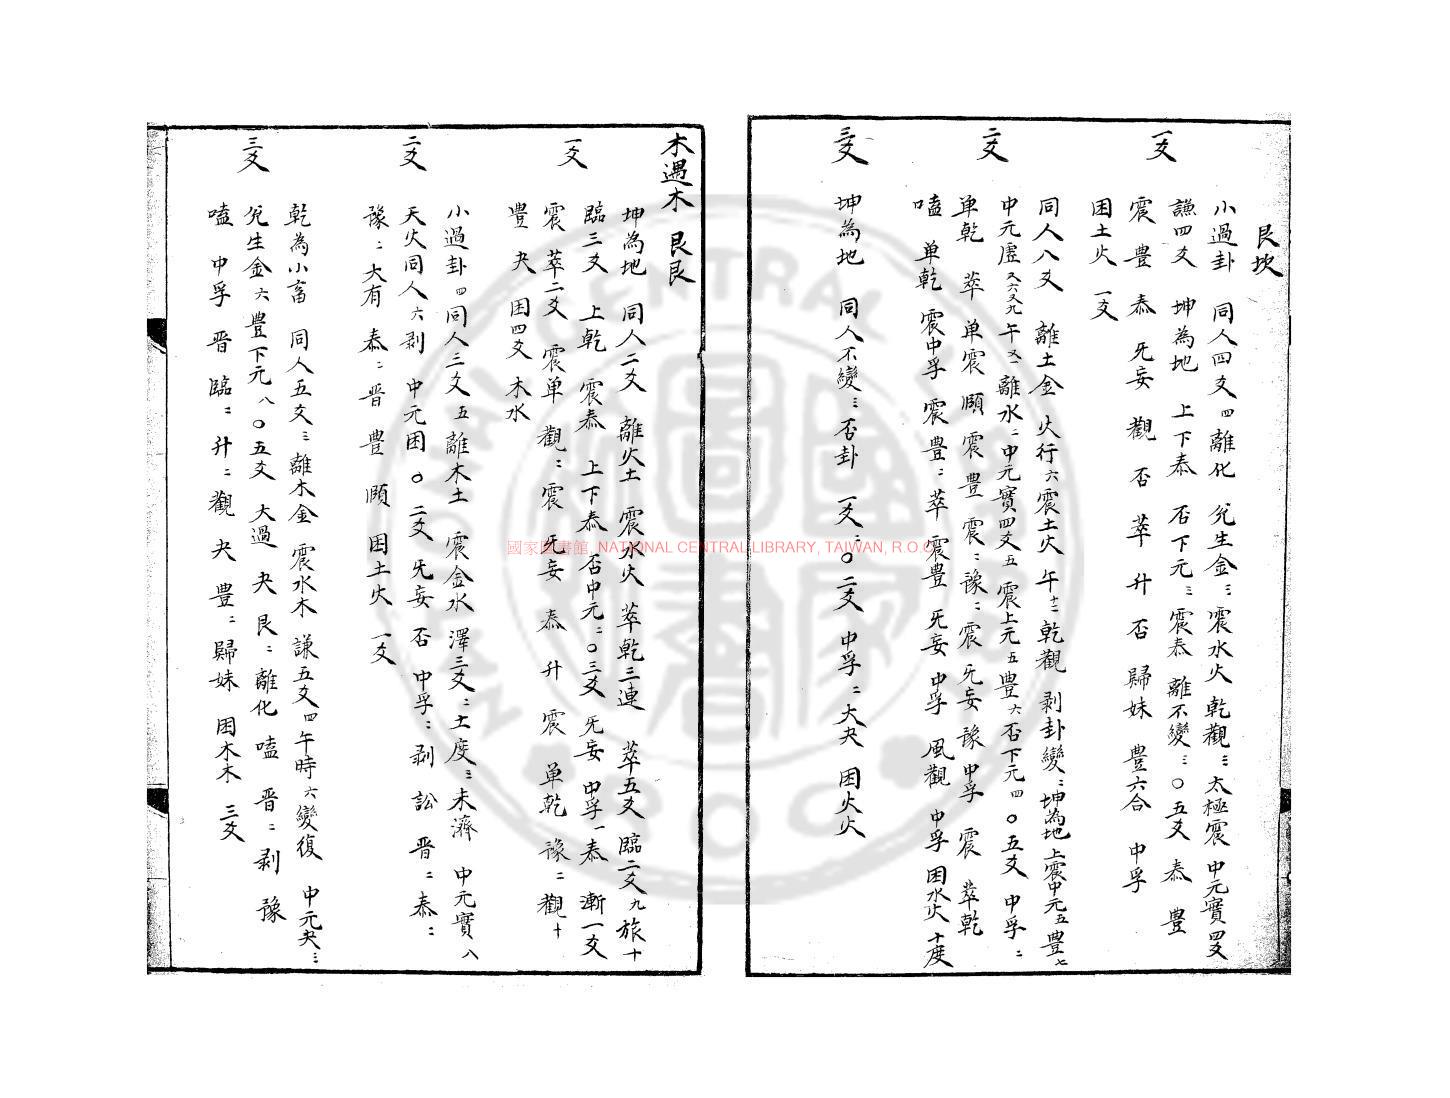 艮坎
一爻
小過卦 同人四爻 四 離化 兌生金 三 震水火 乾觀 三 太極震 中元實四爻
謙四爻 坤為地 上下泰 否下元 三 震泰 離不變 三 〇五爻 泰 豊
震 豊 泰 旡妄 觀 否 萃 升 否 歸妹 豊六合 中孚
困土火 一爻
二爻
同人八爻 離土金 火行 六 震土火 午 十二 乾觀 剥卦變 二 坤為地 上震中元 五 豊 七
中元虛 又六又九 午 又一 離水 二 中元實四爻 五 震上元 五 豊 六 否下元 四 〇五爻 中孚 二
单乾 萃 单震 頤 震 豊 震 二 豫 二 震 旡妄 豫 中孚 震 萃乾
嗑 单乾 震中孚 震豊 二 萃 震豊 旡妄 中孚 風觀 中孚 困水火 十度
三爻
坤為地 同人不變 三 否卦 一爻 二 〇二爻 中孚 二 大夬 困火火
木遇木 艮艮
一爻
坤為地 同人二爻 離火土 震水火 萃乾三連 萃五爻 臨二爻 九 旅 十
臨三爻 上乾 震泰 上下泰 否中元 二 〇三爻 旡妄 中孚一泰 漸一爻
震 萃二爻 震单 觀 二 震 旡妄 泰 升 震 单乾 豫 二 觀 十
豊 夬 困四爻 木水
二爻
小過卦 四 同人三爻 五 離木土 震金水 澤三爻 二 土度 三 未濟 中元實 八
天火同人 六 剥 中元困 〇二爻 旡妄 否 中孚 二 剥 訟 晋 二 泰 二
豫 二 大有 泰 二 晋 豊 頤 困土火 一爻
三爻
乾為小畜 同人五爻 三 離木金 震水木 謙五爻 四 午時 六 變復 中元夬 三
兌生金 六 豊下元 八 〇五爻 大過 夬 艮 二 離化 嗑 晋 二 剥 豫
嗑 中孚 晋 臨 二 升 二 觀 夬 豊 二 歸妹 困木木 三爻
國家圖書館, NATIONAL CENTRAL LIBRARY, TAIWAN, R.O.C.